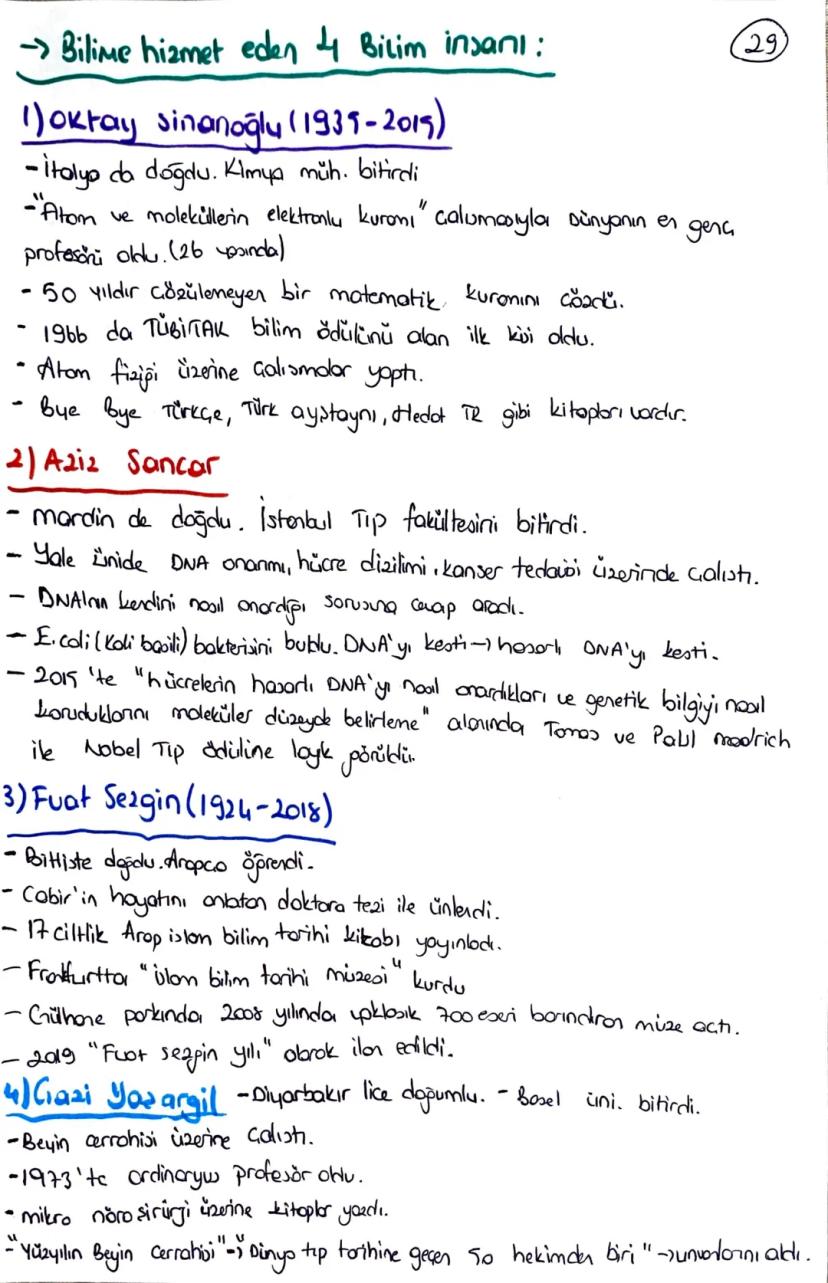 → Bilime hizmet eden 4 Bilim insanı :
29
1) Oktay Sinanoğlu (1935-2015)
- İtalya da doğdu. Kimya müh. bitirdi
- "Atom ve moleküllerin elektronlu kuramı" çalışmasıyla Dünyanın en genç
profesörü oldu. (26 yaşında)
- 50 yıldır çözülemeyen bir matematik kuramını çözdü.
- 1966 da TÜBİTAK bilim ödülünü alan ilk kişi oldu.
- Atom fiziği üzerine çalışmalar yaptı.
- Bye Bye Türkçe, Türk aynştaynı, Hedef TR gibi kitapları vardır.
2) Aziz Sancar
- mardin de doğdu. İstanbul Tıp fakültesini bitirdi.
- Yale ünide DNA onarımı, hücre dizilimi, kanser tedavisi üzerinde çalıştı.
- DNAlnın kendini nasıl onardığı sorusuna cevap aradı.
- E.coli (koli basili) bakterisini buldu. DNA'yı kesti → hasarlı DNA'yı kesti.
- 2015 'te "hücrelerin hasarlı DNA'yı nasıl onardıkları ve genetik bilgiyi nasıl
koruduklarını moleküler düzeyde belirleme" alanında Tomas ve Paul modrich
ile Nobel Tıp ödülüne layık görüldü.
3) Fuat Sezgin (1924-2018)
- Bitliste doğdu. Arapça öğrendi.
- Cabir'in hayatını anlatan doktora tezi ile ünlendi.
- 17 ciltlik Arap islam bilim tarihi kitabı yayınladı.
- Frankfurtta "islam bilim tarihi müzesi" kurdu
- Gülhane parkında 2008 yılında yaklaşık 700 eseri barındıran müze açtı.
- 2019 "Fuat sezgin yılı" olarak ilan edildi.
4) Gazi Yaşargil - Diyarbakır lice doğumlu. - Basel üni. bitirdi.
- Beyin cerrahisi üzerine çalıştı.
- 1973'te ordinaryus profesör oldu.
- mikro nöroşirürji üzerine kitaplar yazdı.
- "Yüzyılın Beyin cerrahisi" - "Dünya tıp tarihine geçen 50 hekimden biri" → unvanlarını aldı.